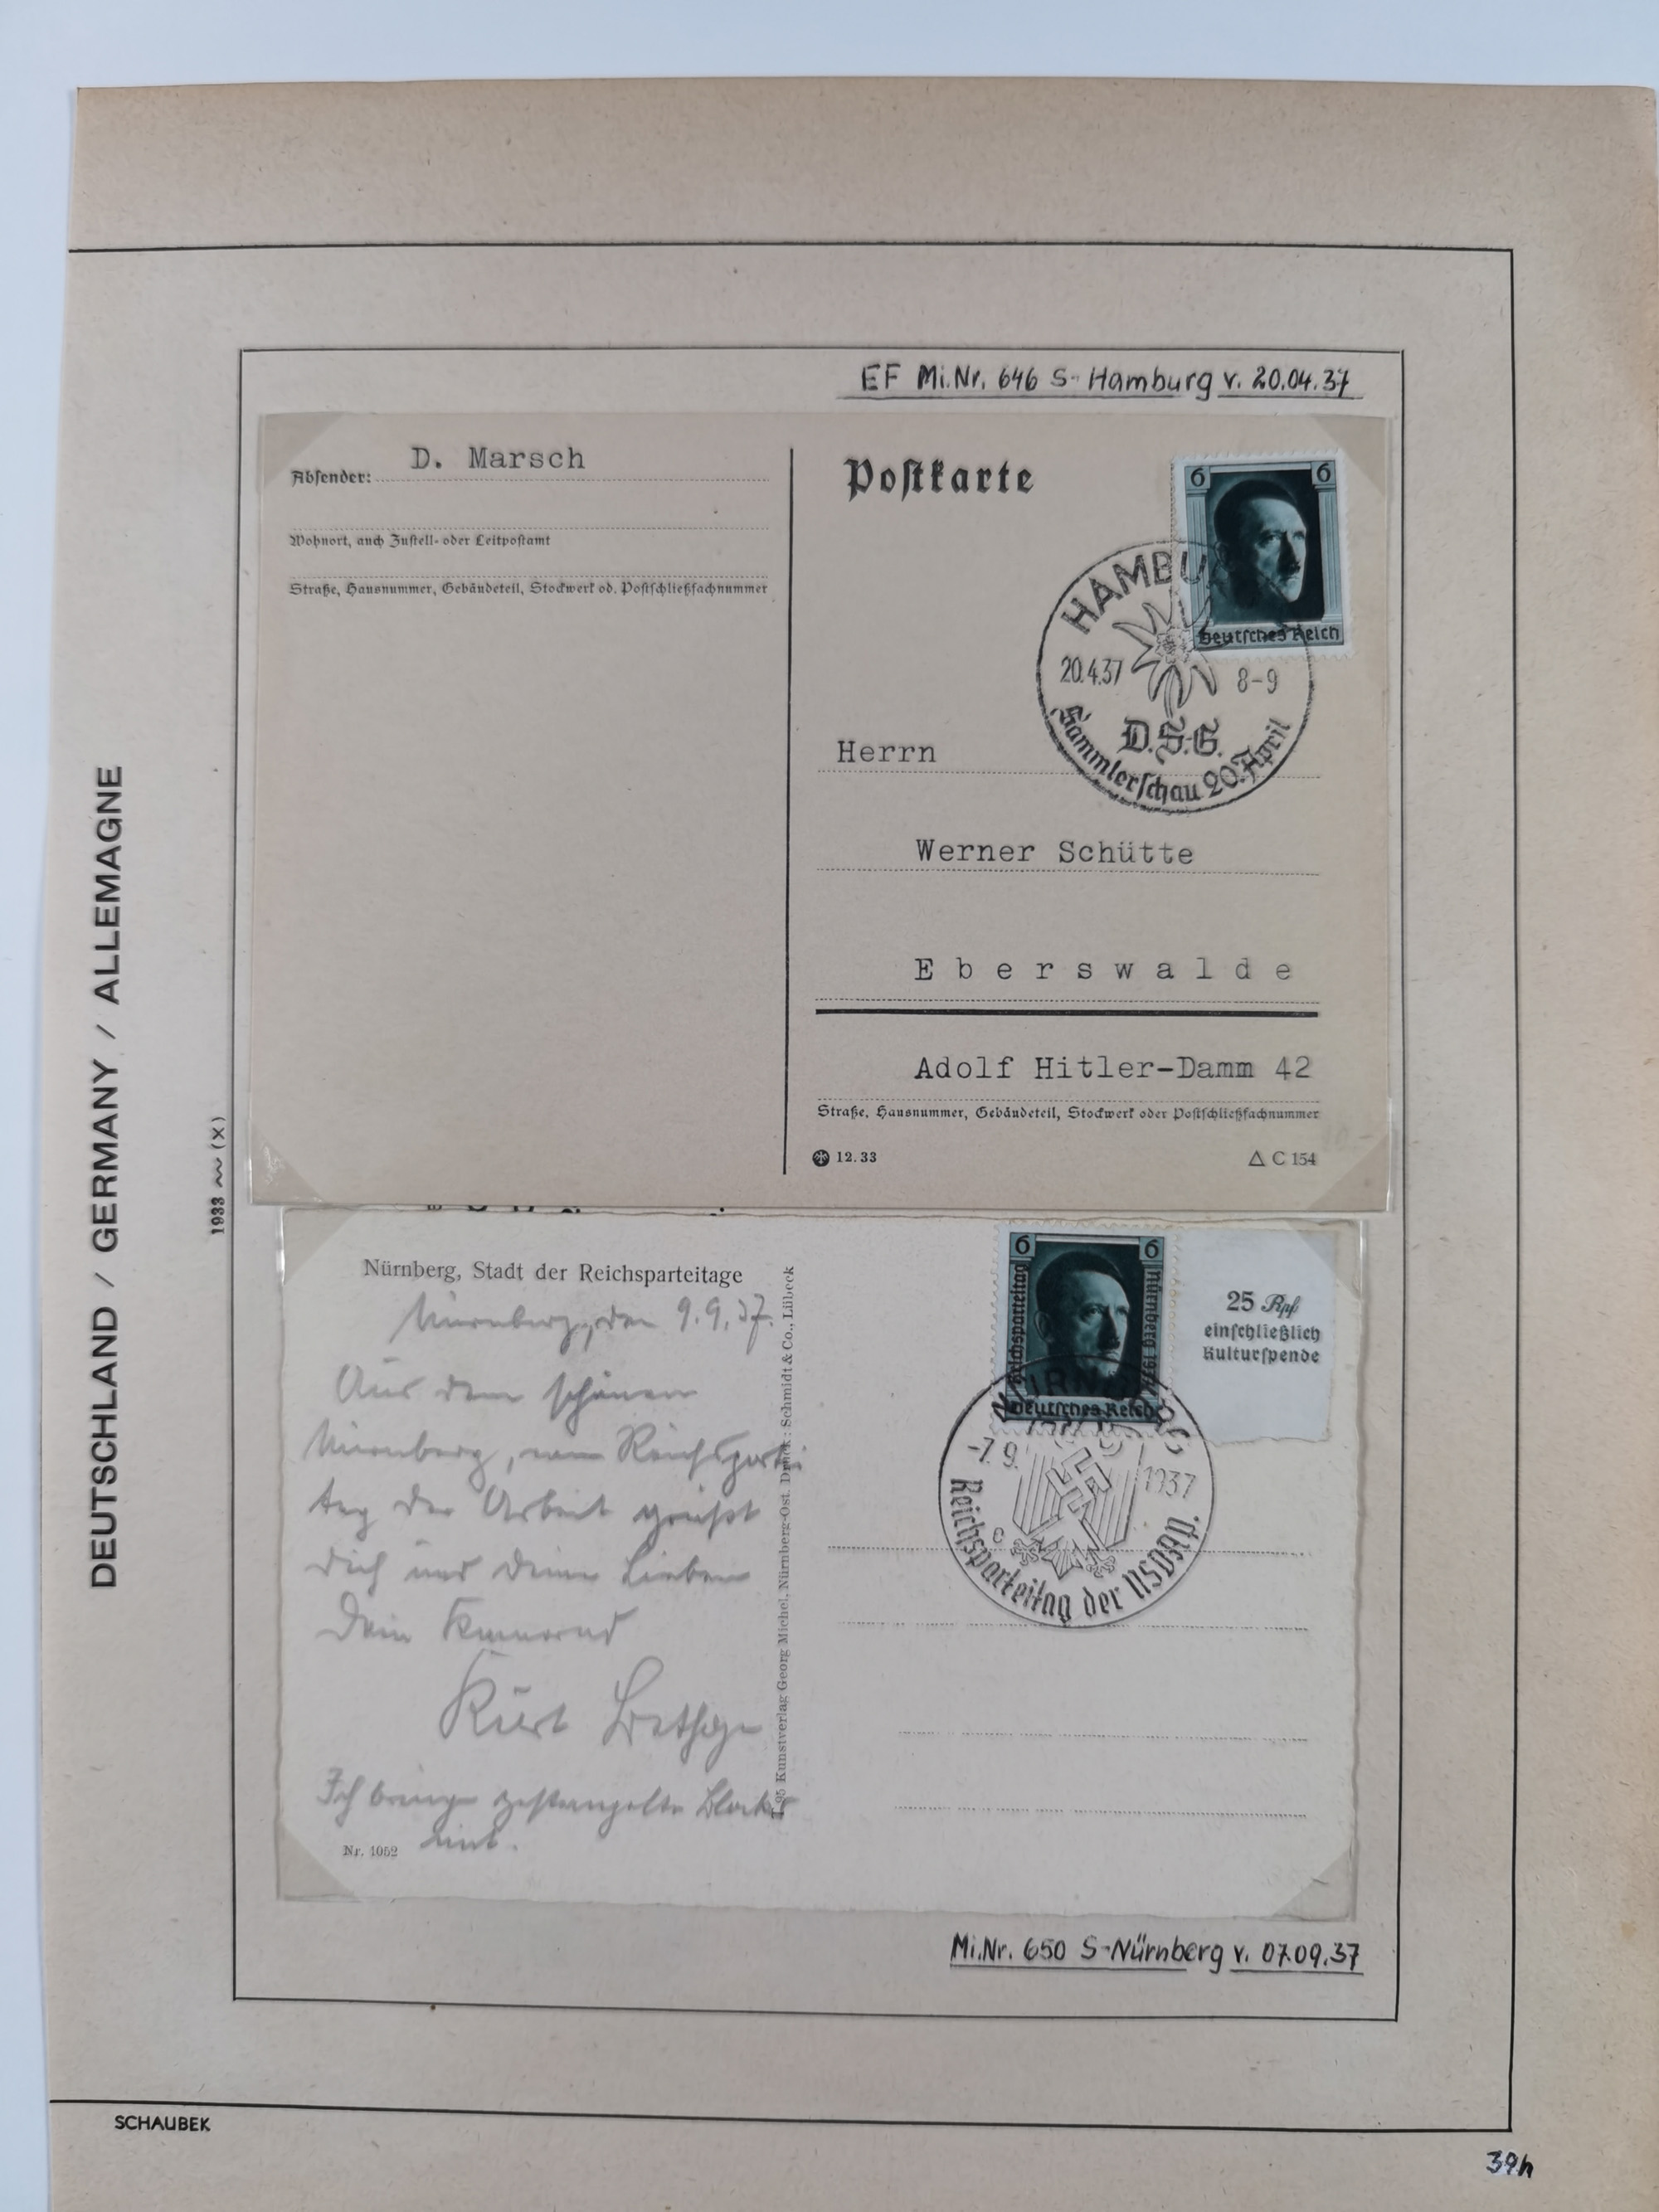 EF Mi.Nr. 646 S-Hamburg v. 20.04.37
Absender: D. Marsch
Wohnort, auch Zustell- oder Leitpostamt
Straße, Hausnummer, Gebäudeteil, Stockwerk od. Postschließfachnummer
Postkarte
6 6
Deutsches Reich
HAMBU
20.4.37 8-9
D.S.G.
Sammlerschau 20. April
Herrn
Werner Schütte
Eberswalde
Adolf Hitler-Damm 42
Straße, Hausnummer, Gebäudeteil, Stockwerk oder Postschließfachnummer
12.33
C 154
Nürnberg, Stadt der Reichsparteitage
Nürnberg, den 9.9.37.
Aus dem schönen
Nürnberg, vom Reichspartei
tag der Arbeit grüßt
Dich und Deine Lieben
Dein Kamerad
Kurt Bethge
Ich bringe gestempelte Blocks
mit.
Nr. 1052
L 95 Kunstverlag Georg Michel, Nürnberg-Ost. Druck: Schmidt & Co., Lübeck
6 6
Reichsparteitag
Nürnberg 1937
Deutsches Reich
25 Rpf
einschließlich
Kulturspende
NÜRNBERG
-7.9. 1937
c
Reichsparteitag der NSDAP.
Mi.Nr. 650 S-Nürnberg v. 07.09.37
DEUTSCHLAND / GERMANY / ALLEMAGNE
1933 ~ (X)
SCHAUBEK
39h